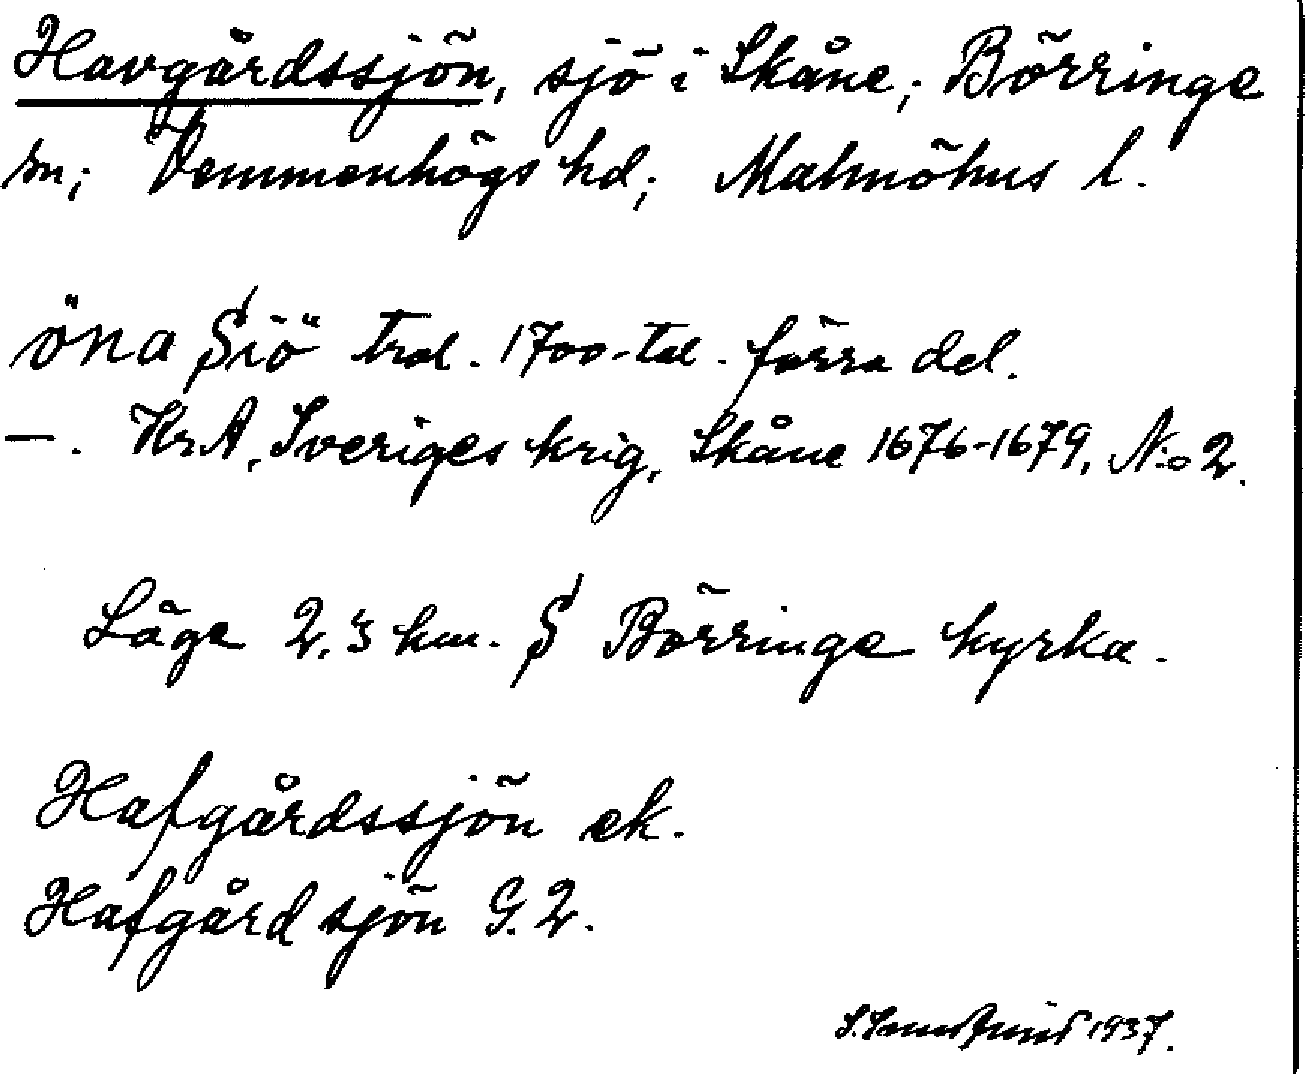 Havgårdssjön, sjö i Skåne; Börringe
sn; Vemmenhögs hd; Malmöhus l.
öna Siö trol. 1700-tal. förra del.
—. Kr.A, Sveriges krig, Skåne 1676-1679, N:o 2.
Läge 2,3 km. S Börringe kyrka.
Hafgårdssjön ek.
Hafgård sjön G. 2.
1937.